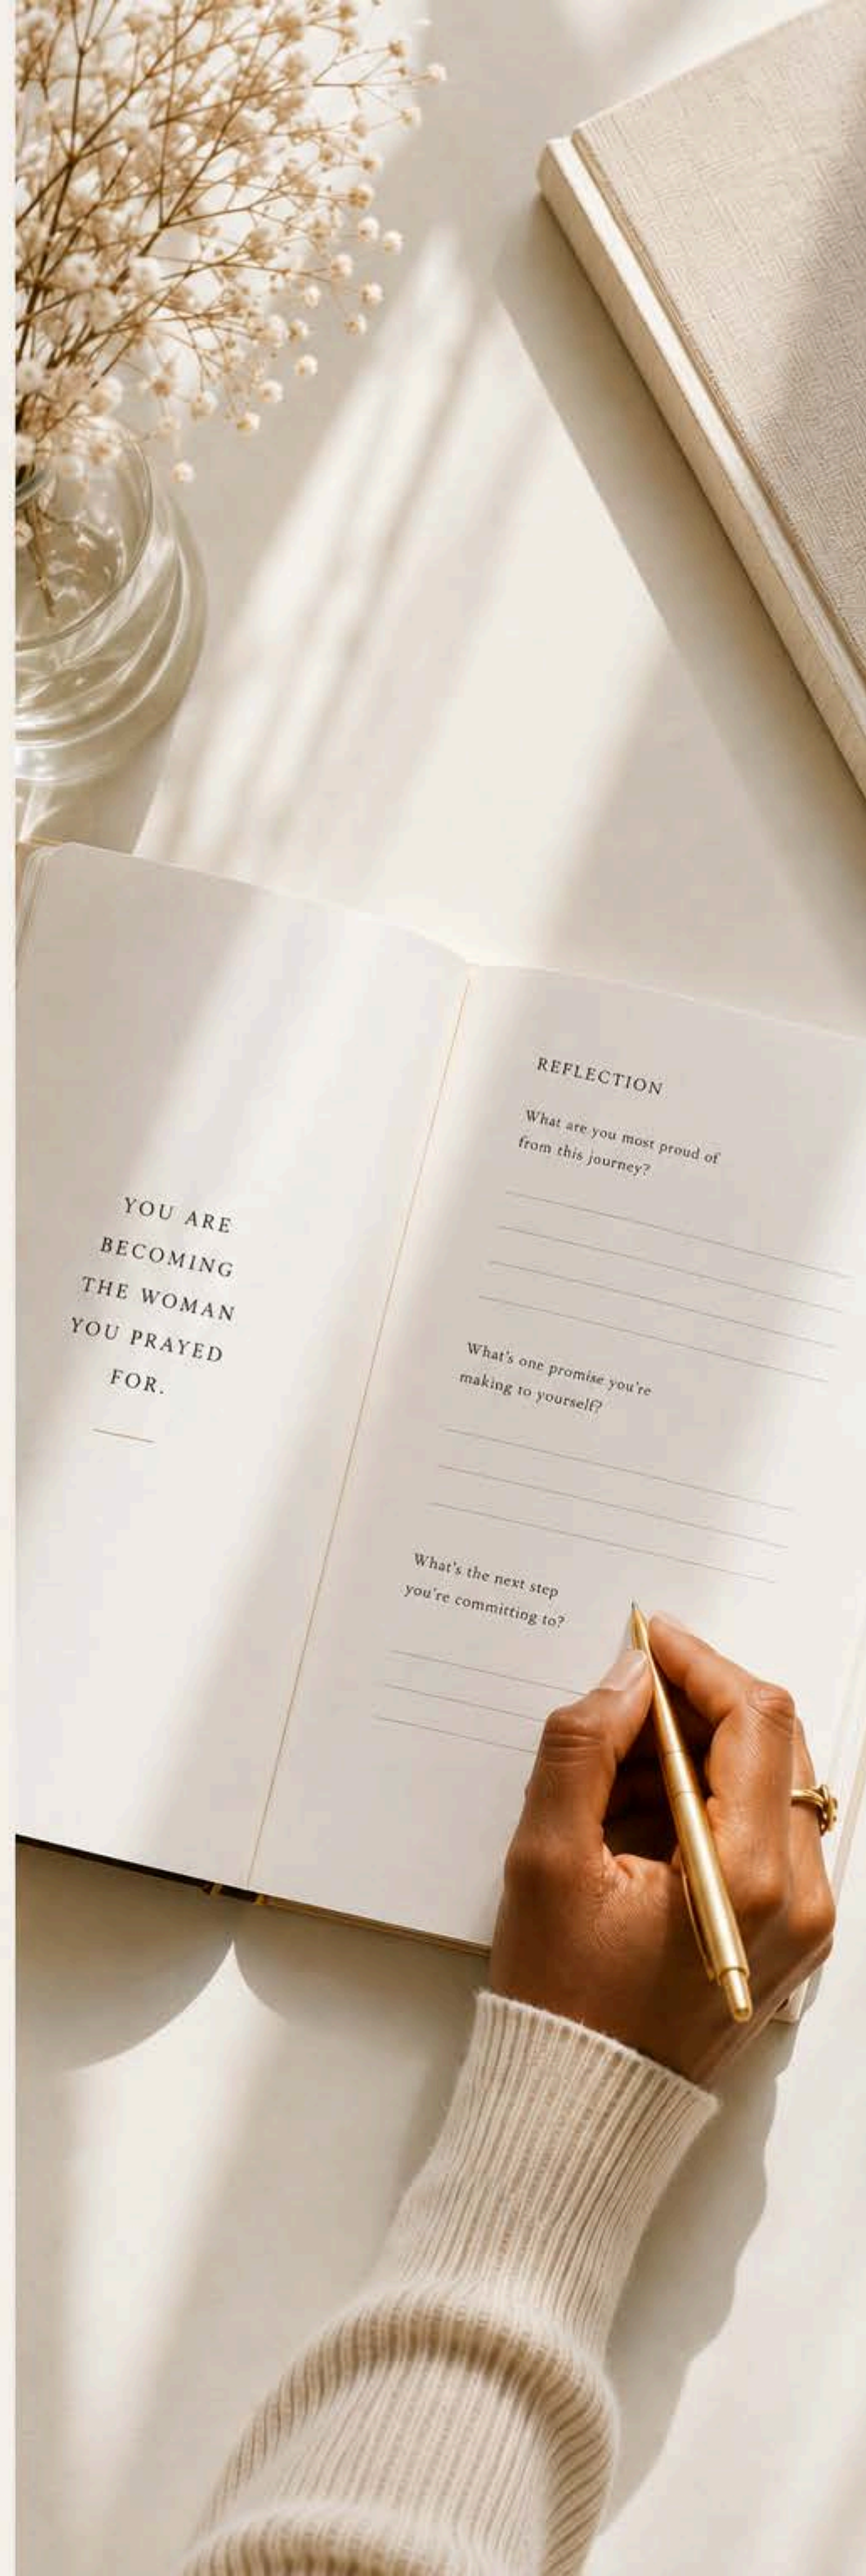 YOU ARE
BECOMING
THE WOMAN
YOU PRAYED
FOR.
REFLECTION
What are you most proud of
from this journey?
What's one promise you're
making to yourself?
What's the next step
you're committing to?